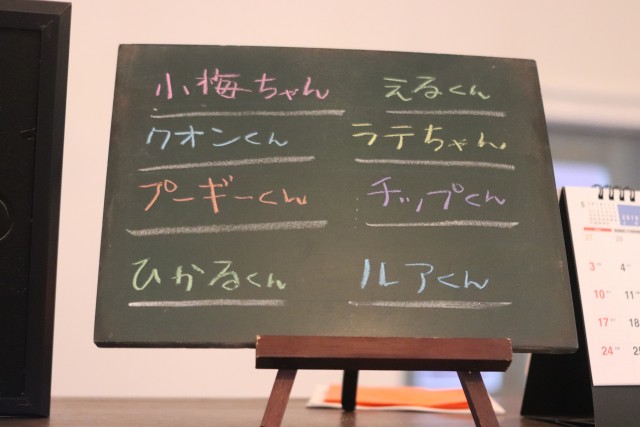 小梅ちゃん
えるくん
クオンくん
ラテちゃん
プーギーくん
チップくん
ひかるくん
ルアくん
3
4
10
11
17
18
24
25